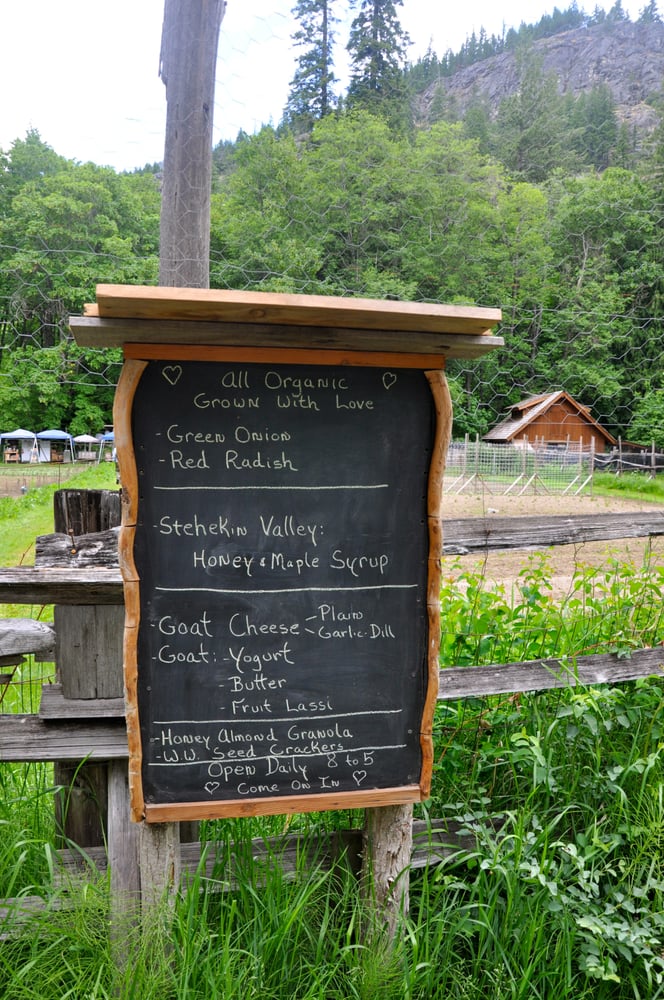 ♡ All Organic ♡
Grown With Love
- Green Onion
- Red Radish
- Stehekin Valley:
Honey & Maple Syrup
- Goat Cheese - Plain
- Garlic-Dill
- Goat: - Yogurt
- Butter
- Fruit Lassi
- Honey Almond Granola
- W.W. Seed Crackers
Open Daily 8 to 5
♡ Come On In ♡